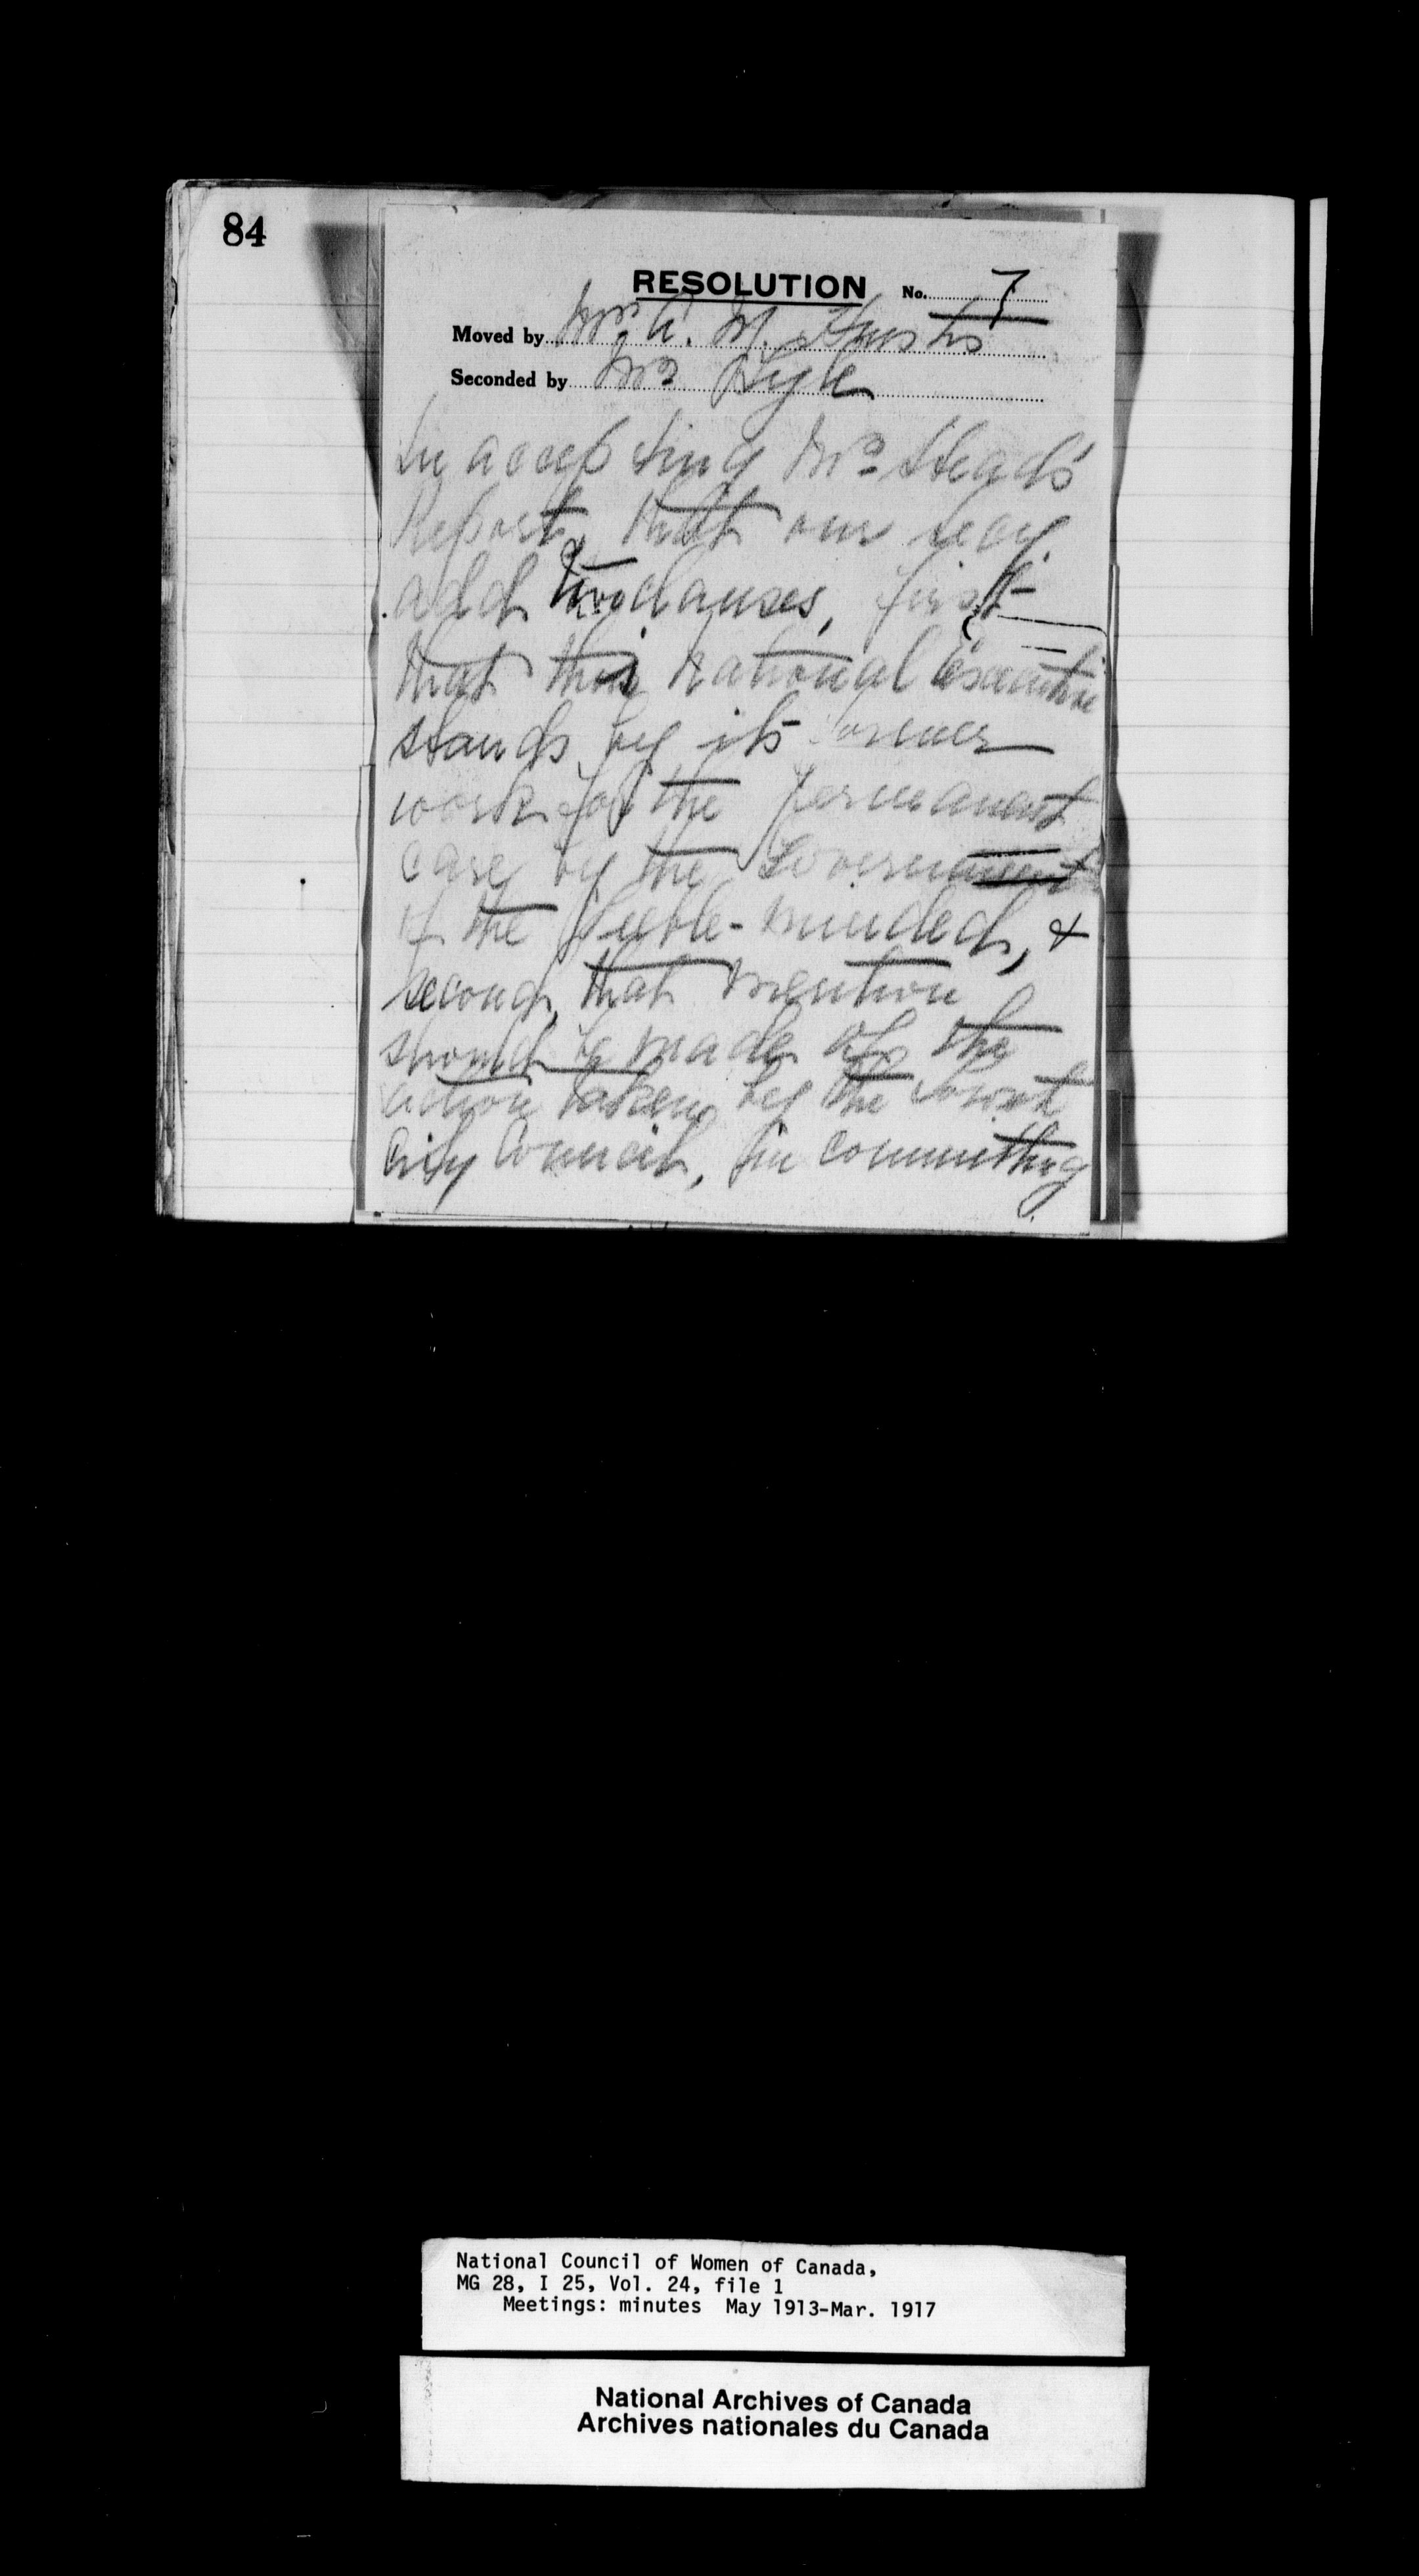 84
RESOLUTION No. 7
Moved by Mrs. A. M. Huestis
Seconded by Mrs Lyle
In accepting Mrs. Stead's
Report, that our secy.
add two clauses, first
that this National Executive
stands by its former
work for the permanent
care by the Government
of the feeble-minded, &
second, that mention
should be made of the
action taken by the
City Council, in committing
National Council of Women of Canada,
MG 28, I 25, Vol. 24, file 1
Meetings: minutes May 1913-Mar. 1917
National Archives of Canada
Archives nationales du Canada